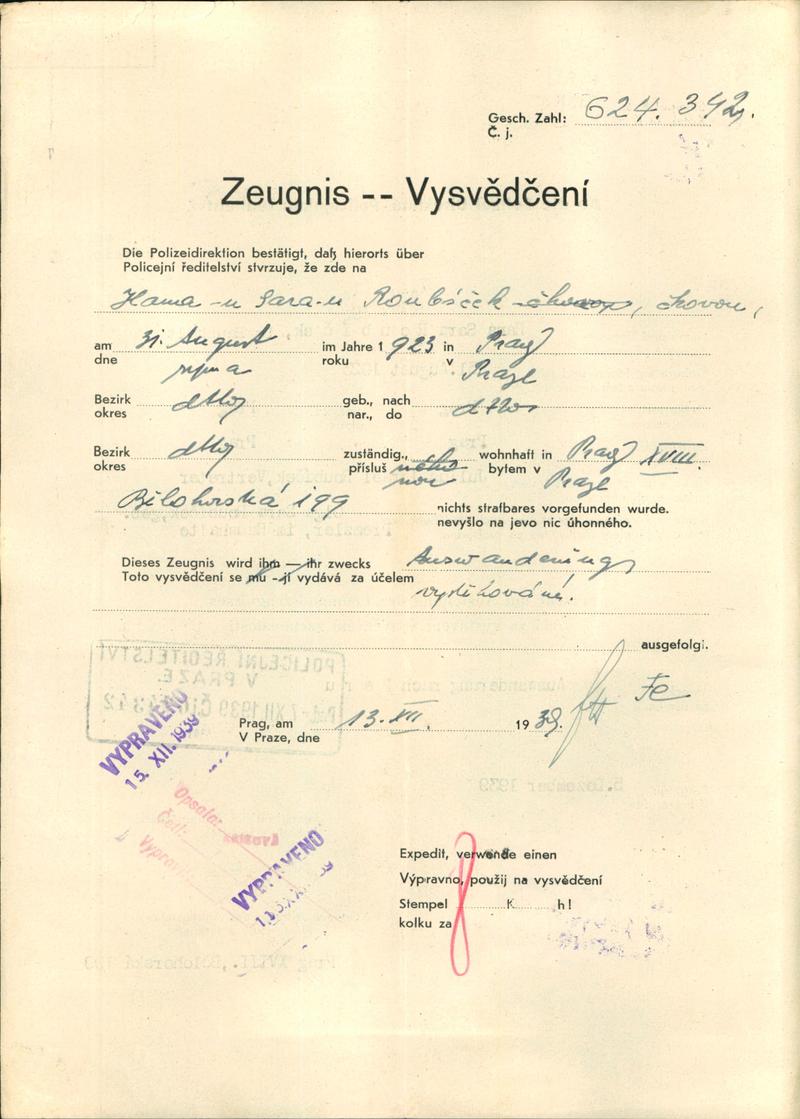 Gesch. Zahl: 624.342.
Č. j.
Zeugnis -- Vysvědčení
Die Polizeidirektion bestätigt, daß hierorts über
Policejní ředitelství stvrzuje, že zde na
Hanna-u Sara-u Roubíček, čkovou,
am 31. August im Jahre 1923 in Prag
dne srpna roku v Praze
Bezirk dtto geb., nach dtto
okres nar., do
Bezirk dtto zuständig., wohnhaft in Prag XVIII.
okres přísluš ného nou bytem v Praze
Bělohorská 199 nichts strafbares vorgefunden wurde.
nevyšlo na jevo nic úhonného.
Dieses Zeugnis wird ihm — ihr zwecks Auswanderung
Toto vysvědčení se mu - jí vydává za účelem vystěhování.
ausgefolgt.
POLICEJNÍ ŘEDITELSTVÍ
V PRAZE.
Prag, am 13. XII. 1939.
V Praze, dne
VYPRAVENO
15. XII. 1939
Opsala:
Četl:
VYPRAVENO
Expedit, verwende einen
Výpravno, použij na vysvědčení
Stempel K h!
kolku za